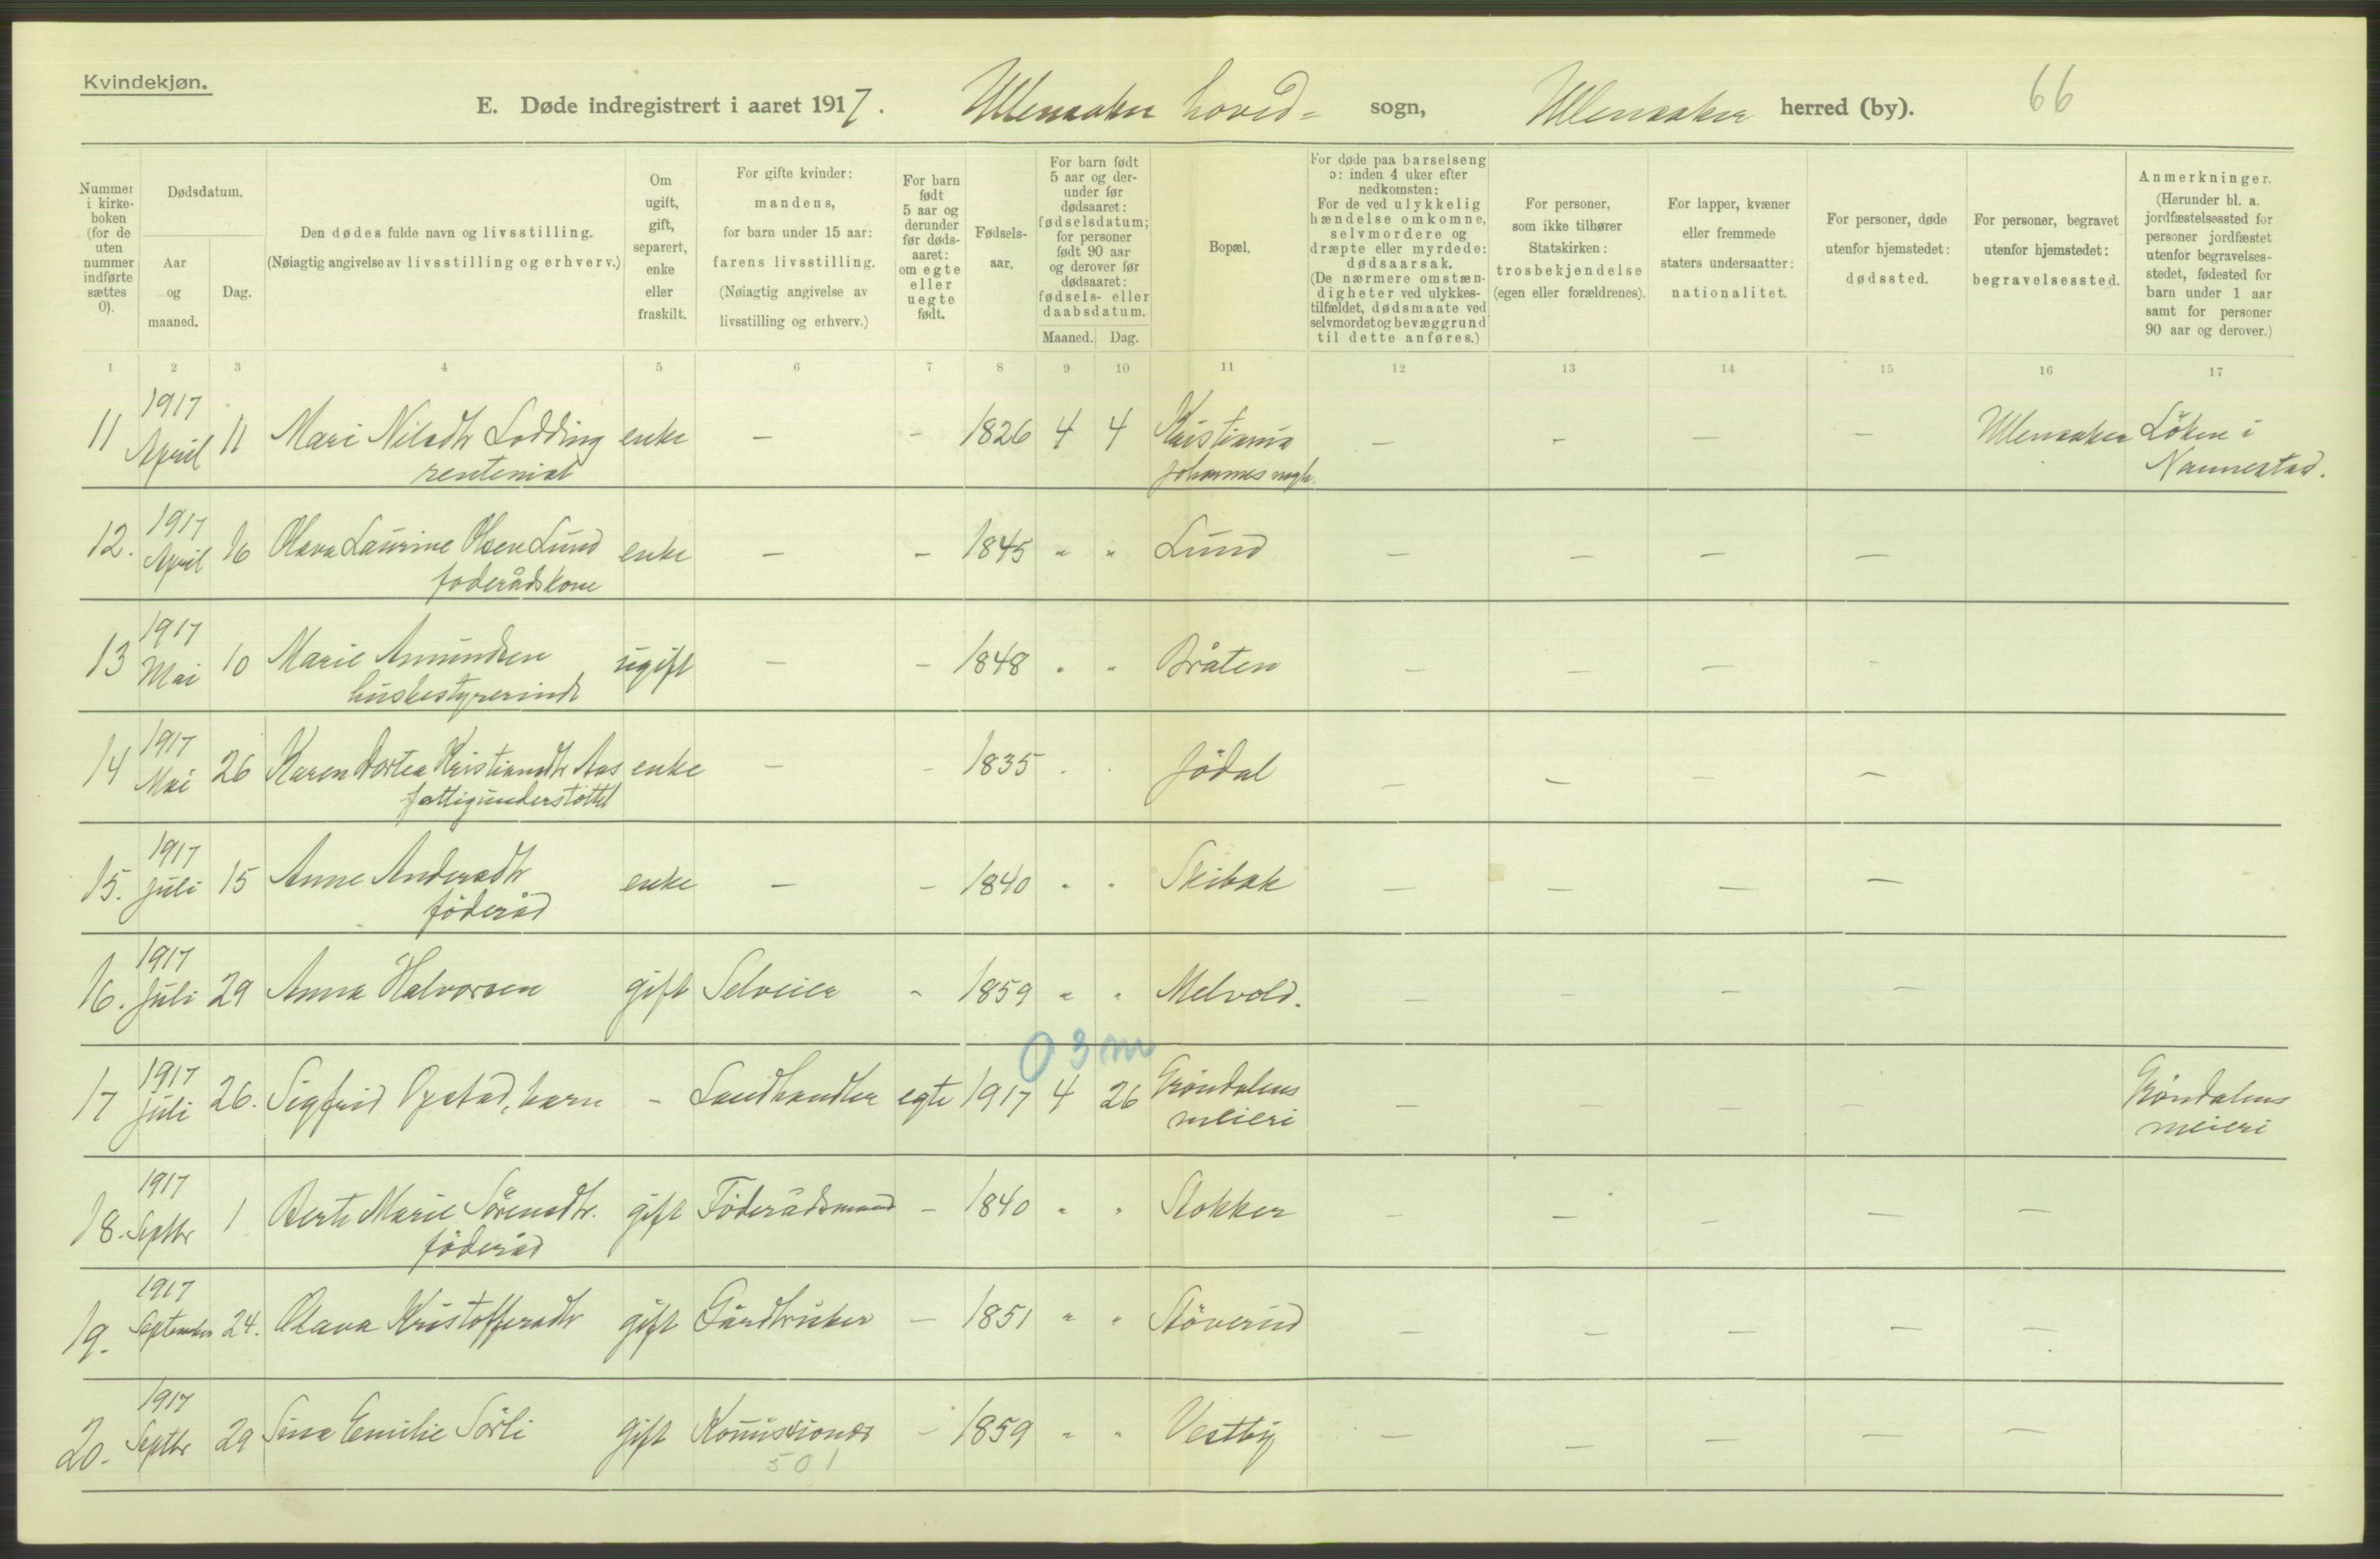 Kvindekjøn.
E. Døde indregistrert i aaret 1917. Ullensaker hoved= sogn, Ullensaker herred (by). 66
Nummer i kirkeboken (for de uten nummer indførte sættes 0).
Dødsdatum.
Aar og maaned.
Dag.
Den dødes fulde navn og livsstilling.
(Nøiagtig angivelse av livsstilling og erhverv.)
Om ugift, gift, separert, enke eller fraskilt.
For gifte kvinder: mandens, for barn under 15 aar: farens livsstilling. (Nøiagtig angivelse av livsstilling og erhverv.)
For barn født 5 aar og derunder før dødsaaret: om egte eller uegte født.
Fødselsaar.
For barn født 5 aar og derunder før dødsaaret: fødselsdatum; for personer født 90 aar og derover før dødsaaret: fødsels- eller daabsdatum.
Maaned. Dag.
Bopæl.
For døde paa barselseng ɔ: inden 4 uker efter nedkomsten: For de ved ulykkelig hændelse omkomne, selvmordere og dræpte eller myrdede: dødsaarsak. (De nærmere omstændigheter ved ulykkestilfældet, dødsmaate ved selvmordet og bevæggrund til dette anføres.)
For personer, som ikke tilhører Statskirken: trosbekjendelse (egen eller forældrenes).
For lapper, kvæner eller fremmede staters undersaatter: nationalitet.
For personer, døde utenfor hjemstedet: dødssted.
For personer, begravet utenfor hjemstedet: begravelsessted.
Anmerkninger. (Herunder bl. a. jordfæstelsessted for personer jordfæstet utenfor begravelsesstedet, fødested for barn under 1 aar samt for personer 90 aar og derover.)
1 2 3 4 5 6 7 8 9 10 11 12 13 14 15 16 17
1917
11 April 11 Mari Nilsdtr Lodding enke – – 1826 4 4 Kristiania – – – – Ullensaker Löken i
rentenist Johannes Nannestad.
1917
12. April 16 Olava Laurine Olsen Lund enke – – 1845 " " Lund – – – –
foderådskone
1917
13 Mai 10 Marie Amundsen ugift – – 1848 " " Bråten – – – –
husbestyrerinde
1917
14 Mai 26 Karen Dortea Kristiansdtr Aas enke – – 1835 " " Jödal – – – –
fattigunderstöttet
1917
15. Juli 15 Anne Andersdtr enke – – 1840 " " Skibak – – – –
föderåd
1917
16. Juli 29 Anna Halvorsen gift Selveier – 1859 " " Melvold. – – – –
0 3 m
1917
17 Juli 26. Sigfrid Opstad, barn – Landhandler egte 1917 4 26 Gröndalens – – – – Gröndalens
meieri meieri
1917
18. Septbr 1 Berte Marie Sörensdtr. gift Föderådsmand – 1840 " " Stokker – – – – –
föderåd
1917
19. September 24. Olava Kristoffersdtr gift Gårdbruker – 1851 " " Stöverud – – – – –
1917
20. Septbr 29 Sina Emilie Sörli gift Komissionær – 1859 " " Vestby – – – – –
501